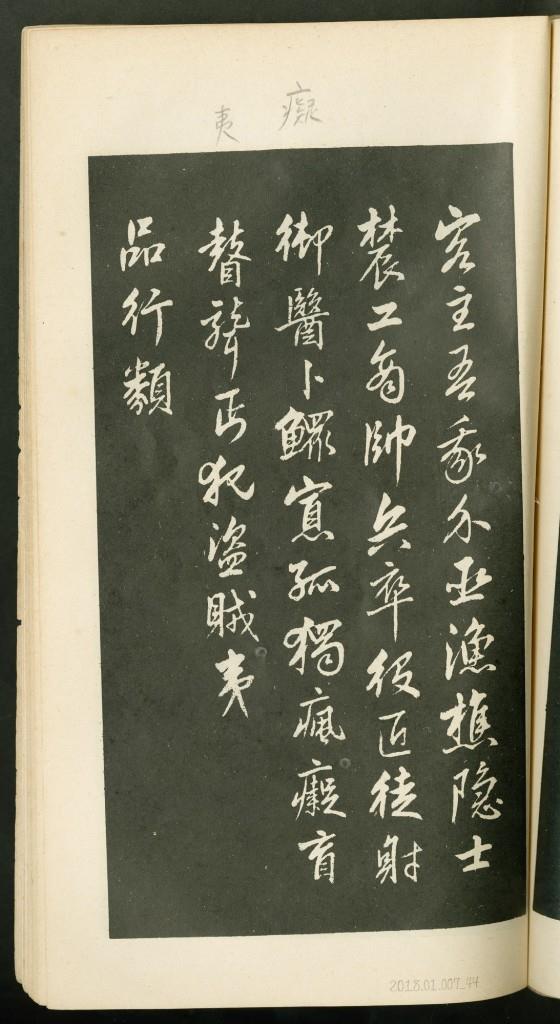 癡
夷
客主吾我尔巫漁樵隐士
農工商帥兵卒役匠徒射
御醫卜鰥寡孤獨瘋癡盲
瞽聾丐犯盜賊夷
品行類
2018.01.007_44